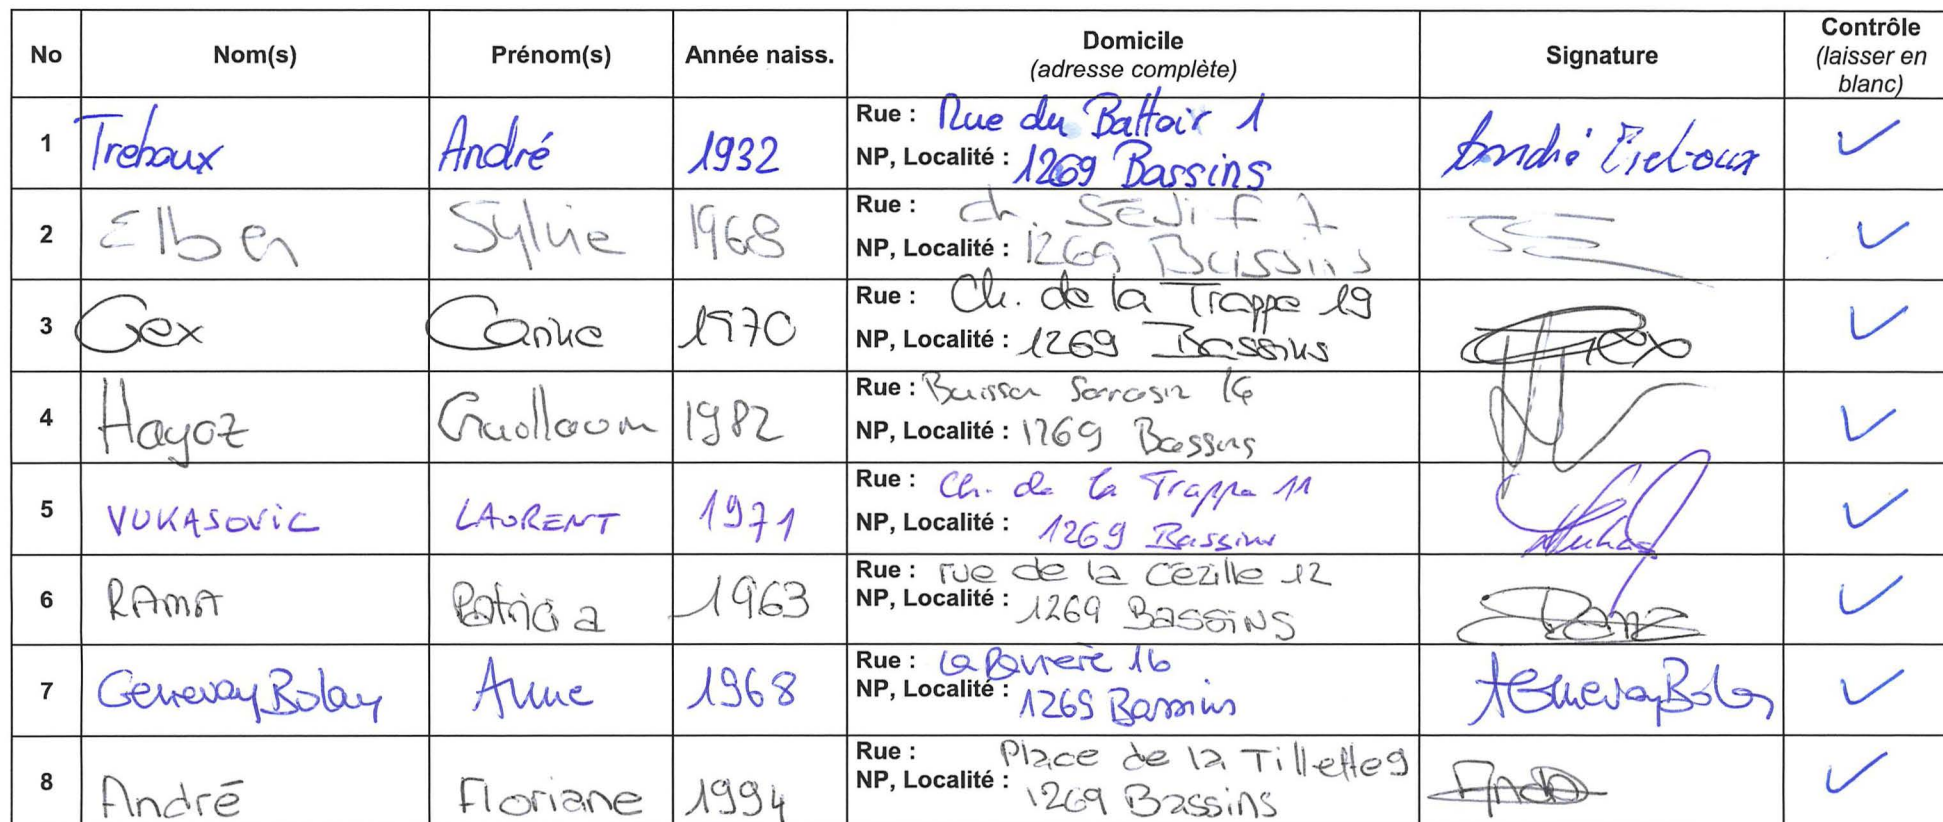 No Nom(s) Prénom(s) Année naiss. Domicile (adresse complète) Signature Contrôle (laisser en blanc)
1 Treboux André 1932 Rue : Rue du Battoir 1 André Treboux
NP, Localité : 1269 Bassins
2 Elber Sylvie 1968 Rue : ch. 7
NP, Localité : 1269 Bassins
3 Gex Carine 1970 Rue : Ch. de la Trappe 19 Gex
NP, Localité : 1269 Bassins
4 Hayoz 1982 Rue : Buisson Sarrasin
NP, Localité : 1269 Bassins
5 VUKASOVIC LAURENT 1971 Rue : Ch. de la Trappe 11
NP, Localité : 1269 Bassins
6 RAMA Patricia 1963 Rue : rue de la Cézille 12
NP, Localité : 1269 BASSINS
7 Genevay Bolay Anne 1968 Rue : 16 AGenevayBolay
NP, Localité : 1269 Bassins
8 André Floriane 1994 Rue : Place de la Tillette 9 André
NP, Localité : 1269 Bassins